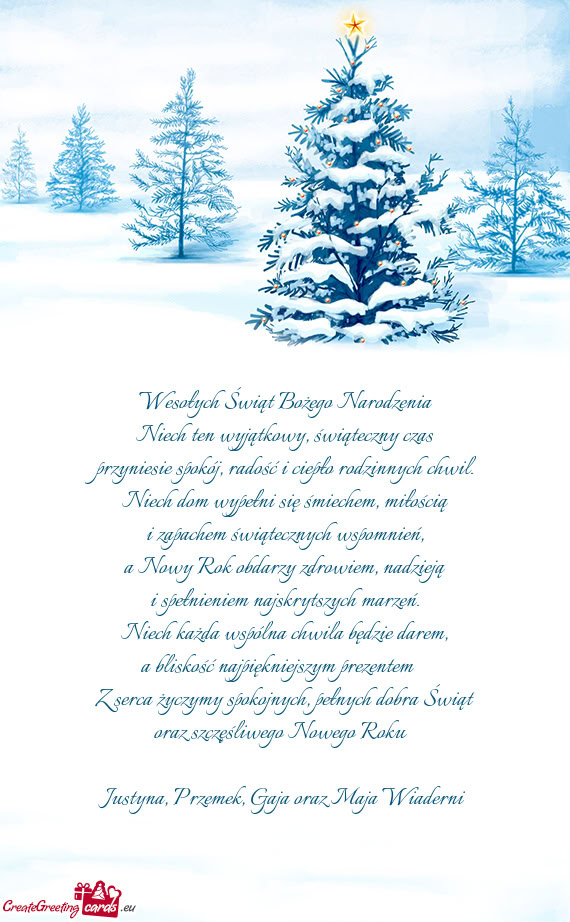 Wesołych Świąt Bożego Narodzenia
Niech ten wyjątkowy, świąteczny czas
przyniesie spokój, radość i ciepło rodzinnych chwil.
Niech dom wypełni się śmiechem, miłością
i zapachem świątecznych wspomnień,
a Nowy Rok obdarzy zdrowiem, nadzieją
i spełnieniem najskrytszych marzeń.
Niech każda wspólna chwila będzie darem,
a bliskość najpiękniejszym prezentem
Z serca życzymy spokojnych, pełnych dobra Świąt
oraz szczęśliwego Nowego Roku
Justyna, Przemek, Gaja oraz Maja Wiaderni
CreateGreeting cards .eu